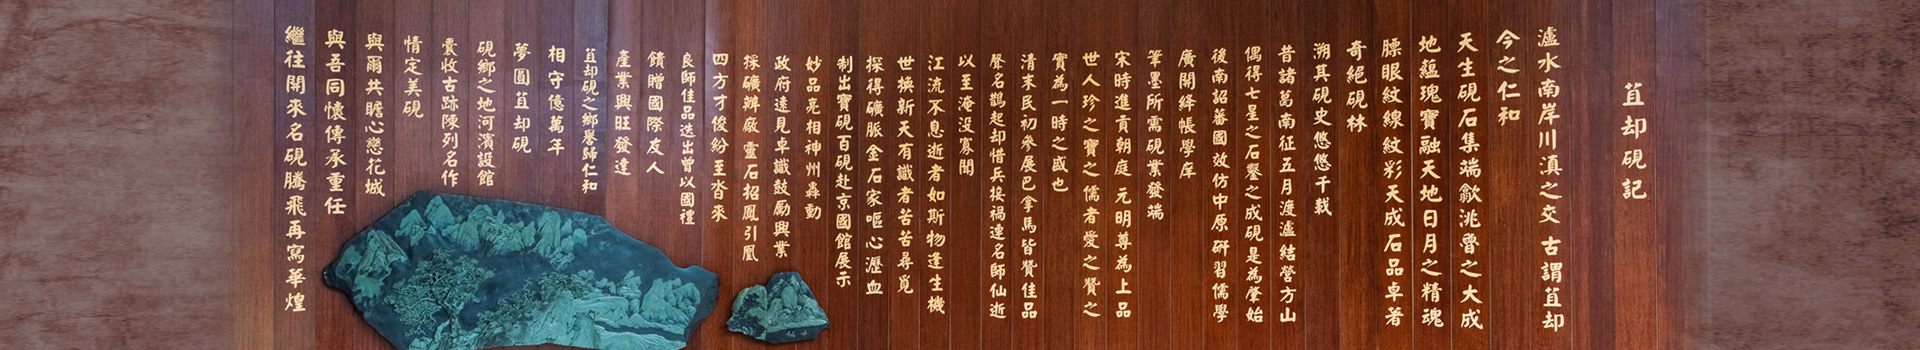 苴却硯記
瀘水南岸川滇之交 古謂苴却
今之仁和
天生硯石集端歙洮魯之大成
地蘊瑰寶融天地日月之精魂
膘眼紋線紋彩天成石品卓著
奇絕硯林
溯其硯史悠悠千載
昔諸葛南征五月渡瀘結營方山
偶得七星之石鑿之成硯是為肇始
後南詔蕃國效仿中原研習儒學
廣開絳帳學庠
筆墨所需硯業發端
宋時進貢朝庭 元明尊為上品
世人珍之寶之儒者愛之贊之
實為一時之盛也
清末民初參展巴拿馬皆贊佳品
聲名鵲起却惜兵接禍連名師仙逝
以至淹没寡聞
江流不息逝者如斯物逢生機
世換新天有識者苦苦尋覓
探得礦脈金石家嘔心瀝血
制出寶硯百硯赴京國館展示
妙品亮相神州轟動
政府遠見卓識鼓勵興業
採礦辦廠靈石招鳳引凰
四方才俊紛至沓來
良師佳品迭出曾以國禮
饋贈國際友人
產業興旺發達
苴却硯之鄉譽歸仁和
相守億萬年
夢圓苴却硯
硯鄉之地河濱設館
囊收古跡陳列名作
情定美硯
與爾共瞻心戀花城
與吾同懷傳承重任
繼往開來名硯騰飛再寫華煌